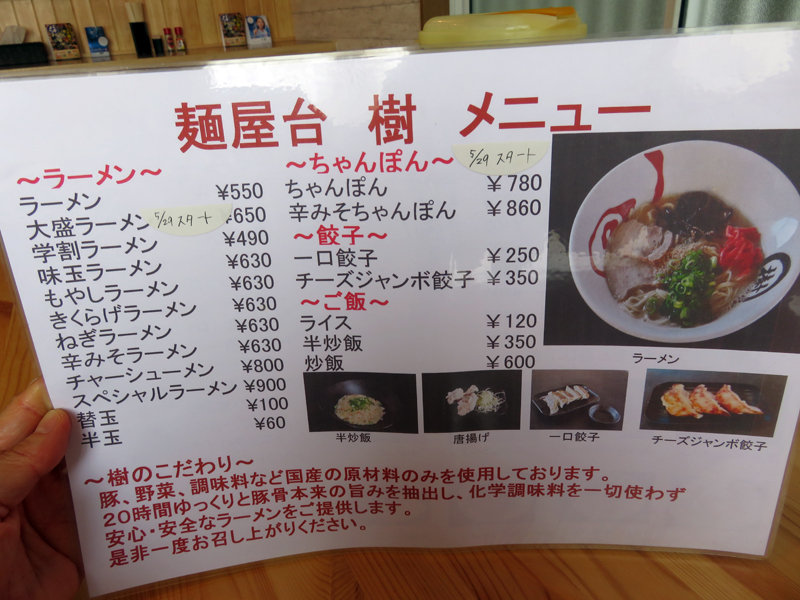 麺屋台 樹 メニュー
～ラーメン～
ラーメン ¥550
大盛ラーメン 5/29 スタート ¥650
学割ラーメン ¥490
味玉ラーメン ¥630
もやしラーメン ¥630
きくらげラーメン ¥630
ねぎラーメン ¥630
辛みそラーメン ¥630
チャーシューメン ¥800
スペシャルラーメン ¥900
替玉 ¥100
半玉 ¥60
～ちゃんぽん～ 5/29 スタート
ちゃんぽん ¥780
辛みそちゃんぽん ¥860
～餃子～
一口餃子 ¥250
チーズジャンボ餃子 ¥350
～ご飯～
ライス ¥120
半炒飯 ¥350
炒飯 ¥600
ラーメン
半炒飯
唐揚げ
一口餃子
チーズジャンボ餃子
～樹のこだわり～
豚、野菜、調味料など国産の原材料のみを使用しております。
20時間ゆっくりと豚骨本来の旨みを抽出し、化学調味料を一切使わず
安心・安全なラーメンをご提供します。
是非一度お召し上がりください。